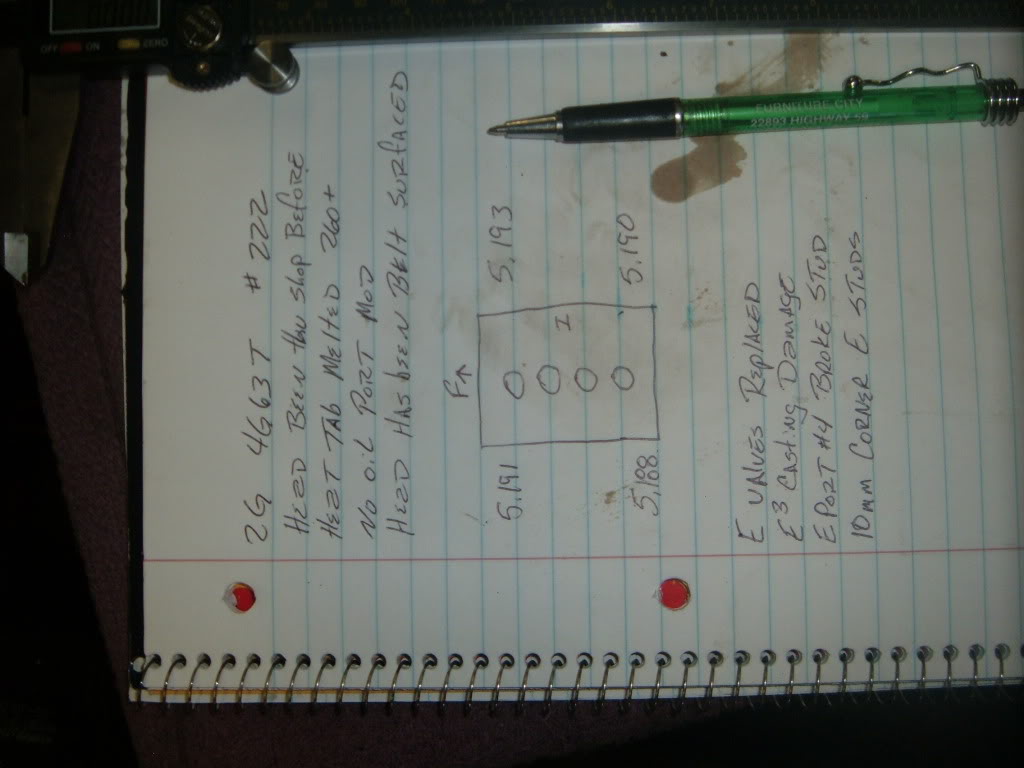 2G 4G63T #222
HEAD BEEN thru shop BEFORE
HEAT TAB MELTED 260+
NO OIL PORT MOD
HEAD HAS bEEN BELT SURFACED
F↑
5.191 5.193
I
5.188 5.190
E VALVES REPLACED
E3 CASTING DAMAGE
E PORT #4 BROKE STUD
10mm CORNER E STUDS
OFF ON ZERO
FURNITURE CITY
22893 HIGHWAY 59